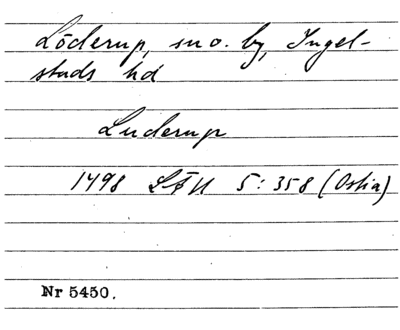 Löderup, sn o. by, Ingel-
stads hd
Luderup
1498 LÄU 5:358 (Ostia)
Nr 5450.